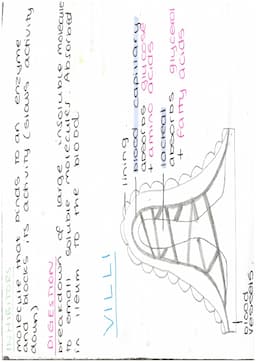 INHIBITORS
molecule that binds to an enzyme
and blocks its activity (slows activity
down)
DIGESTION
breakdown of large insoluble molecules
to small soluble molecules. Absorbed
in ileum to the blood.
VILLI
lining
blood capillary
absorbs glucose
+ amino acids
lacteal
absorbs glycerol
+ fatty acids
blood
vessels